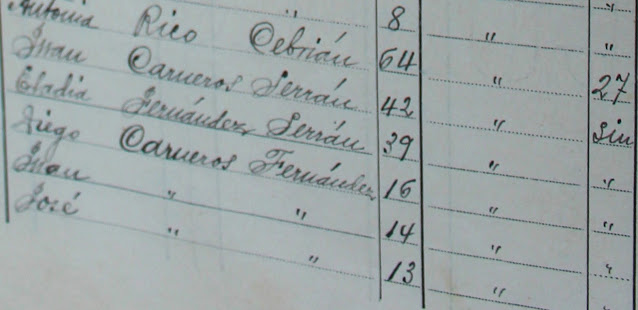 "
" 8 " "
Antonia Rico Cebrián 64 " 27
Juan Carneros Serrán 42 " Sin
Eladia Fernández Serrán 39 " "
Diego Carneros Fernández 16 " "
Juan " " 14 " "
José " " 13 " "